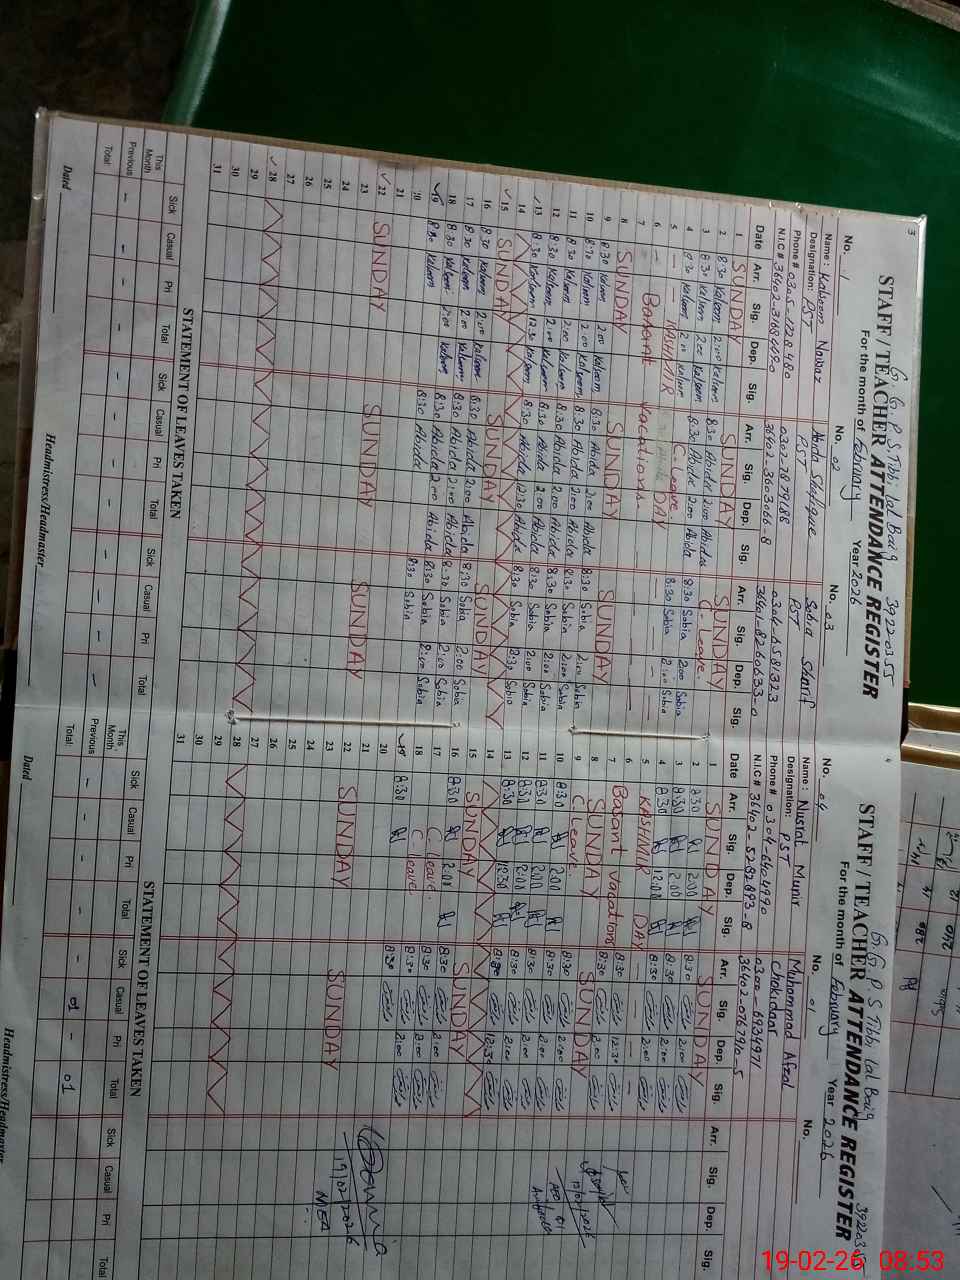 3
G. G. P. S. Tibbi Lal Baig 3922-0355
STAFF / TEACHER ATTENDANCE REGISTER
For the month of February Year 2026
No. 1
Name : Kalsoom Nawaz
Designation: PST
Phone # 0305-1728480
No. 02
Abida Shafique
PST
0302-7879188
No. 03
Sobia Sharif
PST
0304-6581323
Date Arr. Sig. Dep. Sig. Arr. Sig. Dep. Sig. Arr. Sig. Dep. Sig.
1 SUNDAY SUNDAY SUNDAY
2 8:30 Kalsoom 2:00 Kalsoom 8:30 Abida 2:00 Abida C-Leave.
3 8:30 Kalsoom 2:00 Kalsoom C-Leave. 8:30 Sobia 2:00 Sobia
4 8:30 Kalsoom 2:00 Kalsoom 8:30 Abida 2:00 Abida 8:30 Sobia 2:00 Sobia
5 — KASHMIR DAY
6
7 Basant Vacations.
8 SUNDAY SUNDAY SUNDAY
9 8:30 Kalsoom 2:00 Kalsoom 8:30 Abida 2:00 Abida 8:30 Sobia 2:00 Sobia
10 8:30 Kalsoom 2:00 Kalsoom 8:30 Abida 2:00 Abida 8:30 Sobia 2:00 Sobia
11 8:30 Kalsoom 2:00 Kalsoom 8:30 Abida 2:00 Abida 8:30 Sobia 2:00 Sobia
12 8:30 Kalsoom 2:00 Kalsoom 8:30 Abida 2:00 Abida 8:30 Sobia 2:00 Sobia
13 8:30 Kalsoom 12:30 Kalsoom 8:30 Abida 12:30 Abida 8:30 Sobia 12:30 Sobia
14
15 SUNDAY SUNDAY SUNDAY
16 8:30 Kalsoom 2:00 Kalsoom 8:30 Abida 2:00 Abida 8:30 Sobia 2:00 Sobia
17 8:30 Kalsoom 2:00 Kalsoom 8:30 Abida 2:00 Abida 8:30 Sobia 2:00 Sobia
18 8:30 Kalsoom 2:00 Kalsoom 8:30 Abida 2:00 Abida 8:30 Sobia 2:00 Sobia
19 8:30 Kalsoom 8:30 Abida 8:30
20
21
22 SUNDAY SUNDAY SUNDAY
23
24
25
26
27
28
29
30
31
STATEMENT OF LEAVES TAKEN
Sick Casual Pri Total Sick Casual Pri Total Sick Casual Pri Total
This Month
Previous
Total
Dated
Headmistress/Headmaster
4
G. G. P. S Tibbi Lal Baig
STAFF / TEACHER ATTENDANCE REGISTER
For the month of February Year 2026
No. 04
Name : Nusrat Munir
Designation: PST
Phone # 0304-6404990
N.I.C # 36402-5282893-8
No. 01
Muhammad Afzal
Chokidaar
0300-6934971
No.
Date Arr. Sig. Dep. Sig. Arr. Sig. Dep. Sig. Arr. Sig. Dep. Sig.
1 SUNDAY SUNDAY
2 8:30 2:00 8:30 2:00
3 8:30 2:00 8:30 2:00
4 8:30 12:00 8:30 2:00
5 KASHMIR DAY
6 8:30 12:30
7 Basant Vacations 8:30 2:00
8 SUNDAY SUNDAY
9 C Leave. 8:30 2:00
10 8:30 2:00 8:30 2:00
11 8:30 2:00 8:30 2:00
12 8:30 2:00 8:30 2:00
13 8:30 12:30 8:30 12:30
14
15 SUNDAY SUNDAY
16 8:30 2:00 8:30 2:00
17 C-Leave. 8:30 2:00
18 C-Leave 8:30 2:00
19 8:30 8:30
20
21
22 SUNDAY SUNDAY
23
24
25
26
27
28
29
30
31
19/02/2026
MEA
STATEMENT OF LEAVES TAKEN
Sick Casual Pri Total Sick Casual Pri Total Sick Casual Pri Total
This Month
Previous 01 01
Total
Dated
Headmistress/Headmaster
19-02-26 08:53